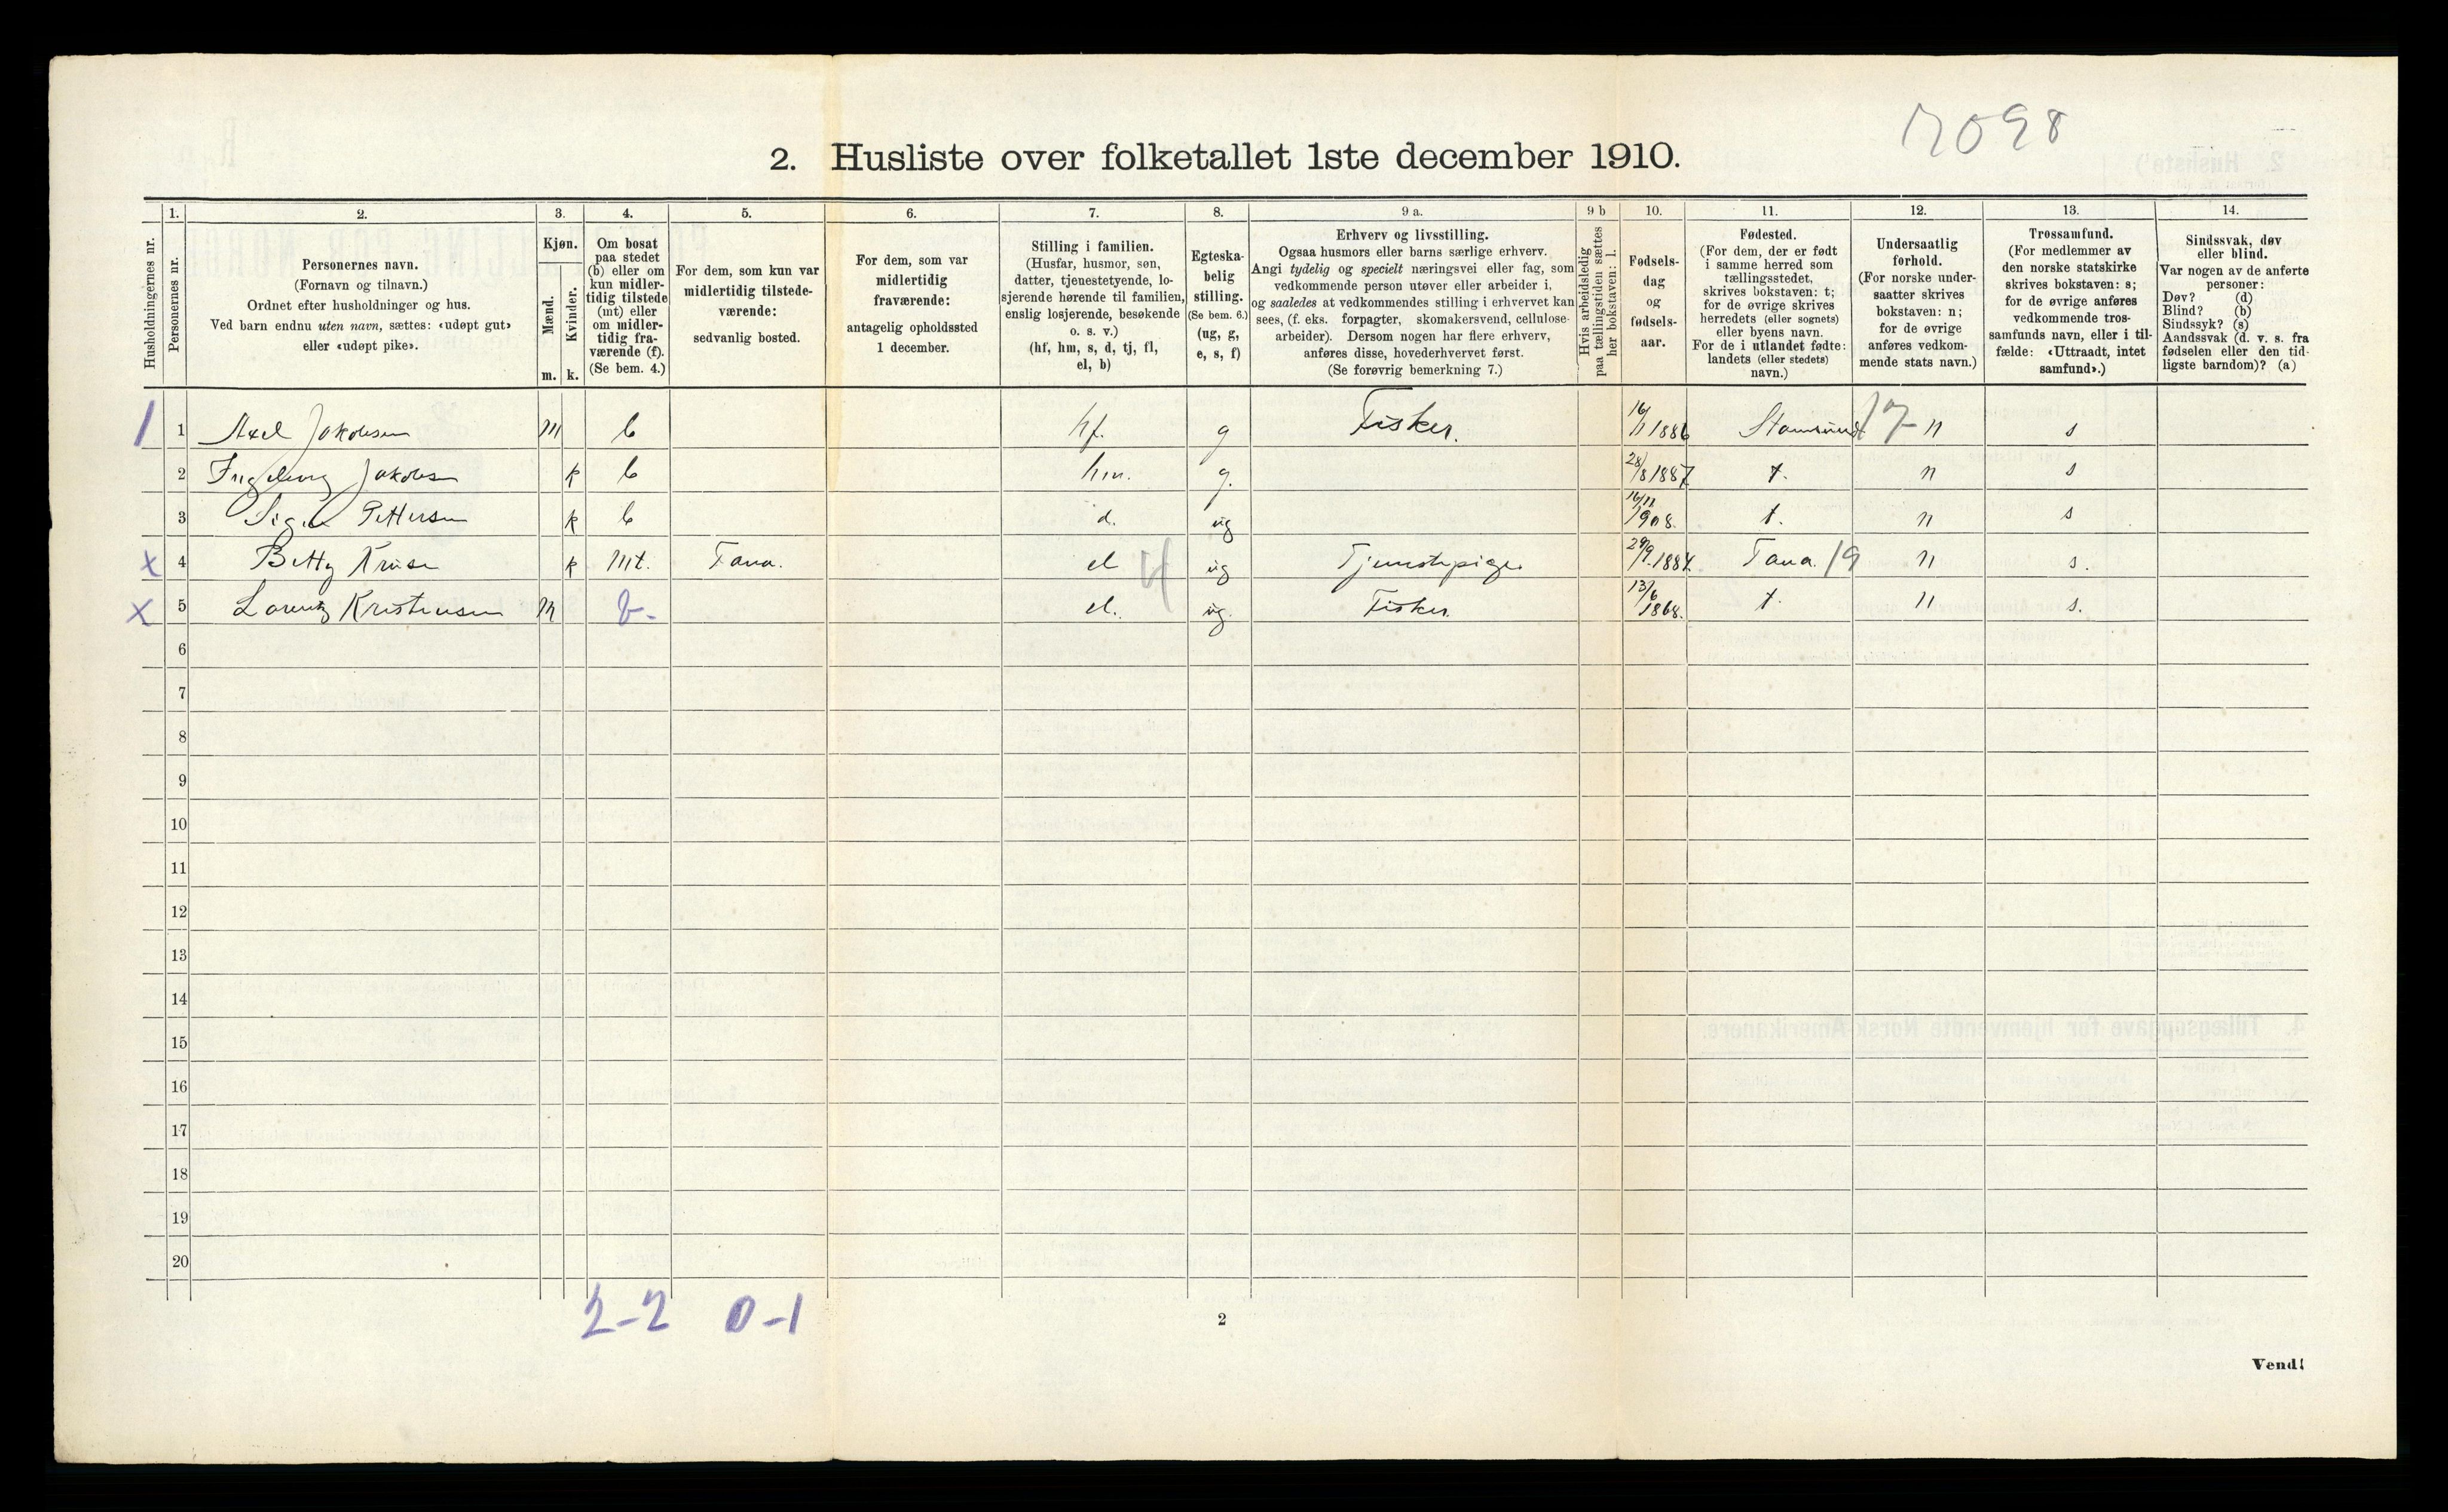 2098
2. Husliste over folketallet 1ste december 1910.
1. 2. 3. 4. 5. 6. 7. 8. 9 a. 9 b 10. 11. 12. 13. 14.
Husholdningernes nr.
Personernes nr.
Personernes navn.
(Fornavn og tilnavn.)
Ordnet efter husholdninger og hus.
Ved barn endnu uten navn, sættes: «udøpt gut»
eller «udøpt pike».
Kjøn.
Mænd.
Kvinder.
m. k.
Om bosat
paa stedet
(b) eller om
kun midler-
tidig tilstede
(mt) eller
om midler-
tidig fra-
værende (f).
(Se bem. 4.)
For dem, som kun var
midlertidig tilstede-
værende:
sedvanlig bosted.
For dem, som var
midlertidig
fraværende:
antagelig opholdssted
1 december.
Stilling i familien.
(Husfar, husmor, søn,
datter, tjenestetyende, lo-
sjerende hørende til familien,
enslig losjerende, besøkende
o. s. v.)
(hf, hm, s, d, tj, fl,
el, b)
Egteska-
belig
stilling.
(Se bem. 6.)
(ug, g,
e, s, f)
Erhverv og livsstilling.
Ogsaa husmors eller barns særlige erhverv.
Angi tydelig og specielt næringsvei eller fag, som
vedkommende person utøver eller arbeider i,
og saaledes at vedkommendes stilling i erhvervet kan
sees, (f. eks. forpagter, skomakersvend, cellulose-
arbeider). Dersom nogen har flere erhverv,
anføres disse, hovederhvervet først.
(Se forøvrig bemerkning 7.)
Hvis arbeidsledig
paa tællingstiden sættes
her bokstaven: l.
Fødsels-
dag
og
fødsels-
aar.
Fødested.
(For dem, der er født
i samme herred som
tællingsstedet,
skrives bokstaven: t;
for de øvrige skrives
herredets (eller sognets)
eller byens navn.
For de i utlandet fødte:
landets (eller stedets)
navn.)
Undersaatlig
forhold.
(For norske under-
saatter skrives
bokstaven: n;
for de øvrige
anføres vedkom-
mende stats navn.)
Trossamfund.
(For medlemmer av
den norske statskirke
skrives bokstaven: s;
for de øvrige anføres
vedkommende tros-
samfunds navn, eller i til-
fælde: «Uttraadt, intet
samfund».)
Sindssvak, døv
eller blind.
Var nogen av de anførte
personer:
Døv? (d)
Blind? (b)
Sindssyk? (s)
Aandssvak (d. v. s. fra
fødselen eller den tid-
ligste barndom)? (a)
1 1 Axel Jakobsen m b hf. g Fisker. 16/1 1886 Stamsund 17 n s
2 Ingeborg Jakobsen k b hm. g. 28/8 1887 t. n s
3 Signe Pettersen k b d. ug 16/11 1908. t. n s
x 4 Betty Kruse k mt. Tana. el 4 ug Tjenestepige. 29/9 1884 Tana. 19 n s.
x 5 Lorentz Kristensen m b- el. ug. Fisker. 13/6 1868. t. n s.
6
7
8
9
10
11
12
13
14
15
16
17
18
19
20
2-2 0-1
2
Vend!